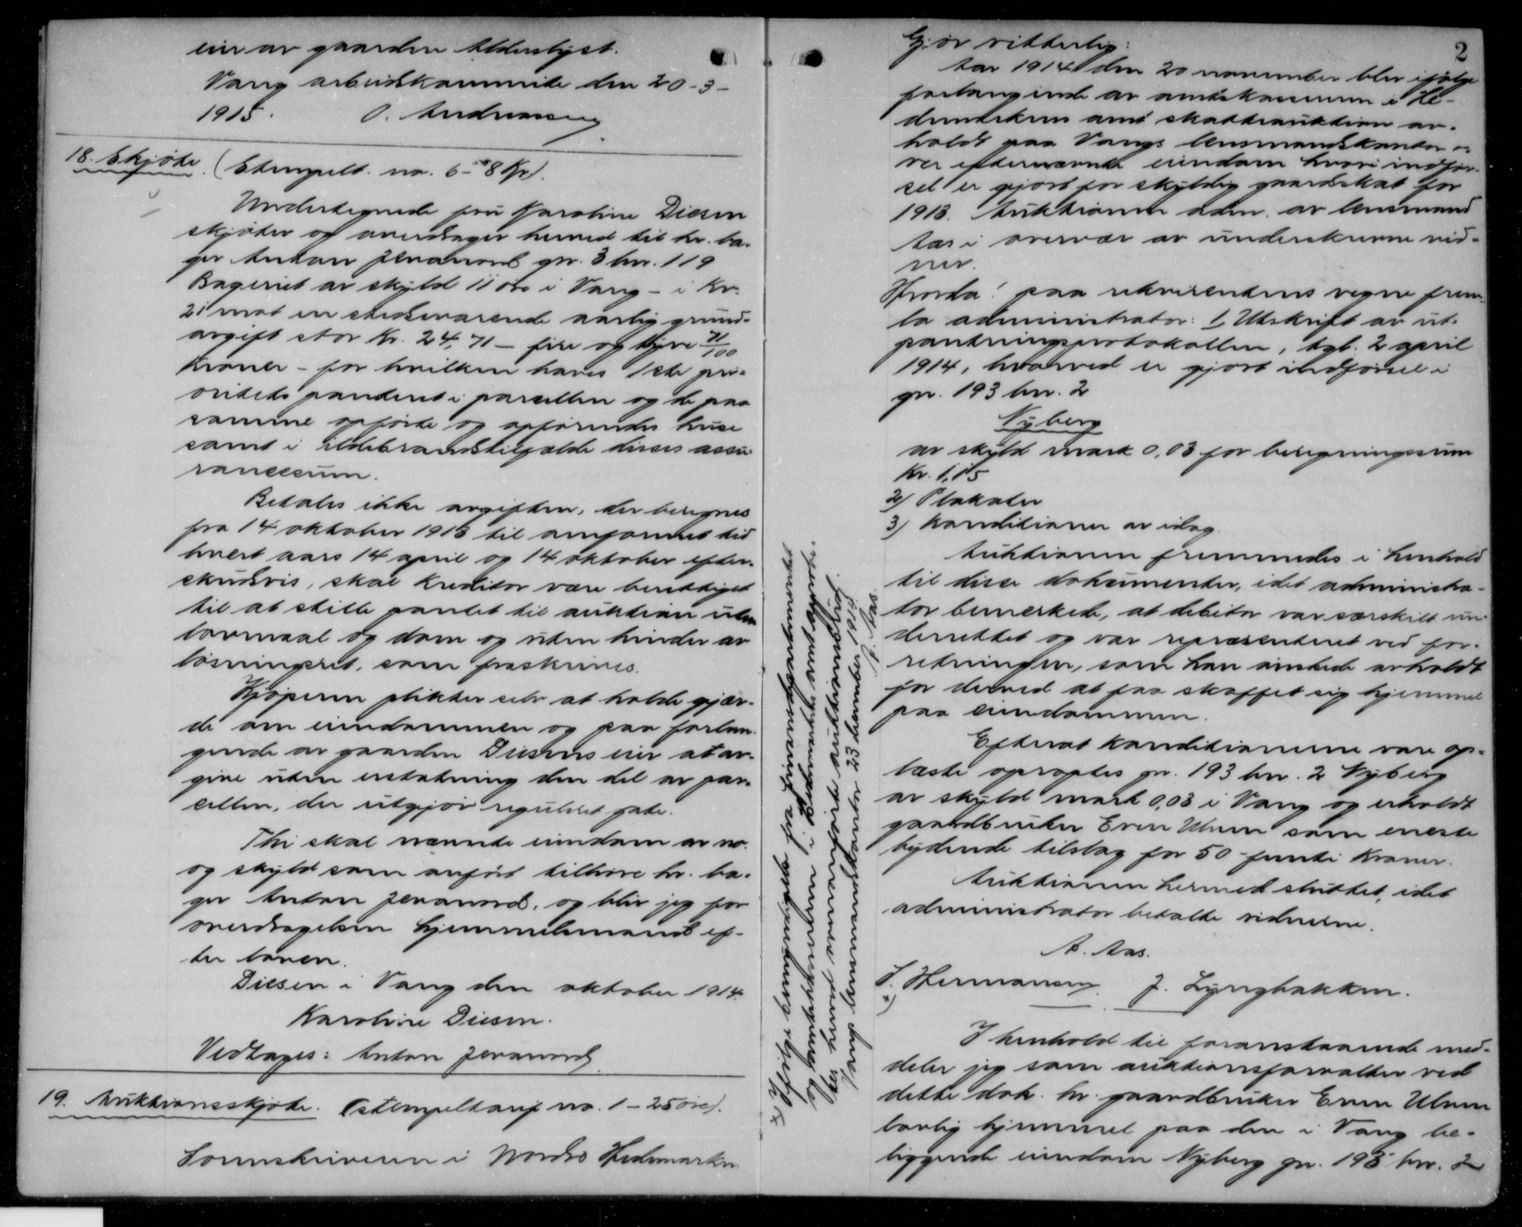 eier av gaarden Alderslyst.
Vang arbeidskommite den 20-3-
1915. O. Andreassen
18. Skjøte. (Stemplt. no. 6 - 8 Kr).
Undertegnede fru Karoline Diesen
skjøter og overdrager herved til hr. ba-
ger Anton Jevanord gr. 3 bnr. 119
Bageriet av skyld 11 øre i Vang - i Kv.
21 mot en aarlig grund-
avgift stor Kr. 24,71 - fire og tyve 71/100
Kroner - for hvilken haves 1ste pri-
oritets panteret i parcellen og de paa
samme opførte og opførendes huse
samt i ildebrandstilfælde disses assu-
rancesum.
Betales ikke avgiften, der beregnes
fra 14 oktober 1913 til omformet tid
hvert aars 14 april og 14 oktober efter-
skudsvis, skal kreditor være berettiget
til at stille pantet til auktion uten
lovmaal og dom og uten hinder av
løsningsret, som fraskrives.
Kjøperen plikter selv at holde gjær-
de om eiendommen og paa forlan-
gende av gaarden Diesens eier at av-
give uten erstatning den del av par-
cellen, der utgjør reguleret gate.
Thi skal nævnte eiendom av no.
og skyld som anført tilhøre hr. ba-
ger Anton Jevanord, og blir jeg for
overdragelsen hjemmelsmand ef-
ter loven.
Diesen i Vang den oktober 1914.
Karoline Diesen.
Vedtages: Anton Jevanord
19. Auktionsskjøte. (stempeltakst no. 1 - 25 øre).
Sorenskriveren i Nordre Hedemarken
x) Ifølge bemyndigelse fra Finansdepartementet
og amtskassereren i Hedemarkens amt approbe-
res herved ovenanførte auktionsbud.
Vangs lensmandskontor 23 december 1914.
A. Aas.
2
Gjør vitterlig:
Aar 1914 den 20 november blev ifølge
forlangende av amtskassereren i He-
demarkens amt skatteauktion av-
holdt paa Vangs lensmandskontor o-
ver efternævnte eiendom hvori indfør-
sel er gjort for skyldig gaardskat for
1913. Auktionen adm. av lensmand
Aas i overvær av underskrevne vid-
ner.
Hvorda! paa rekvirentens vegne frem-
la administrator: 1, Utskrift av ut-
pantningsprotokollen, dgt. 2 april
1914, hvorved er gjort indførsel i
gr. 193 bnr. 2
Nyberg
av skyld mark 0,03 for beregningssum
Kr. 1,15
2) Plakater
3) Konditioner av idag.
Auktionen fremmedes i henhold
til disse dokumenter, idet administra-
tor bemerkede, at debitor var særskilt un-
derrettet og var repræsenteret ved for-
retningen, som han ønskede avholdt
for derved at faa skaffet sig hjemmel
paa eiendommen.
Efterat konditionerne vare op-
læste opraptes gr. 193 bnr. 2 Nyberg
av skyld mark 0,03 i Vang og erholdt
gaardbruker Even Ulven som eneste
bydende tilslag for 50 - femti Kroner.
Auktionen hermed sluttet, idet
administrator betalte vidnerne.
A. Aas.
Hermansen. J. Lyngbakken.
x)
I henhold til foranstaaende med-
deler jeg som auktionsforvalter ved
dette dok. hr. gaardbruker Even Ulven
lovlig hjemmel paa den i Vang be-
liggende eiendom Nyberg gr. 193 bnr. 2